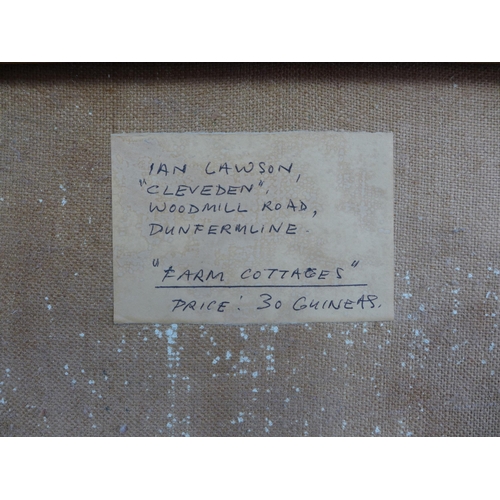 IAN LAWSON,
"CLEVEDEN",
WOODMILL ROAD,
DUNFERMLINE.
"FARM COTTAGES"
PRICE: 30 GUINEAS.